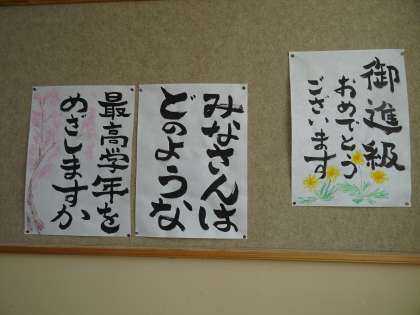 御進級
おめでとう
ございます
みなさんは
どのような
最高学年を
めざしますか